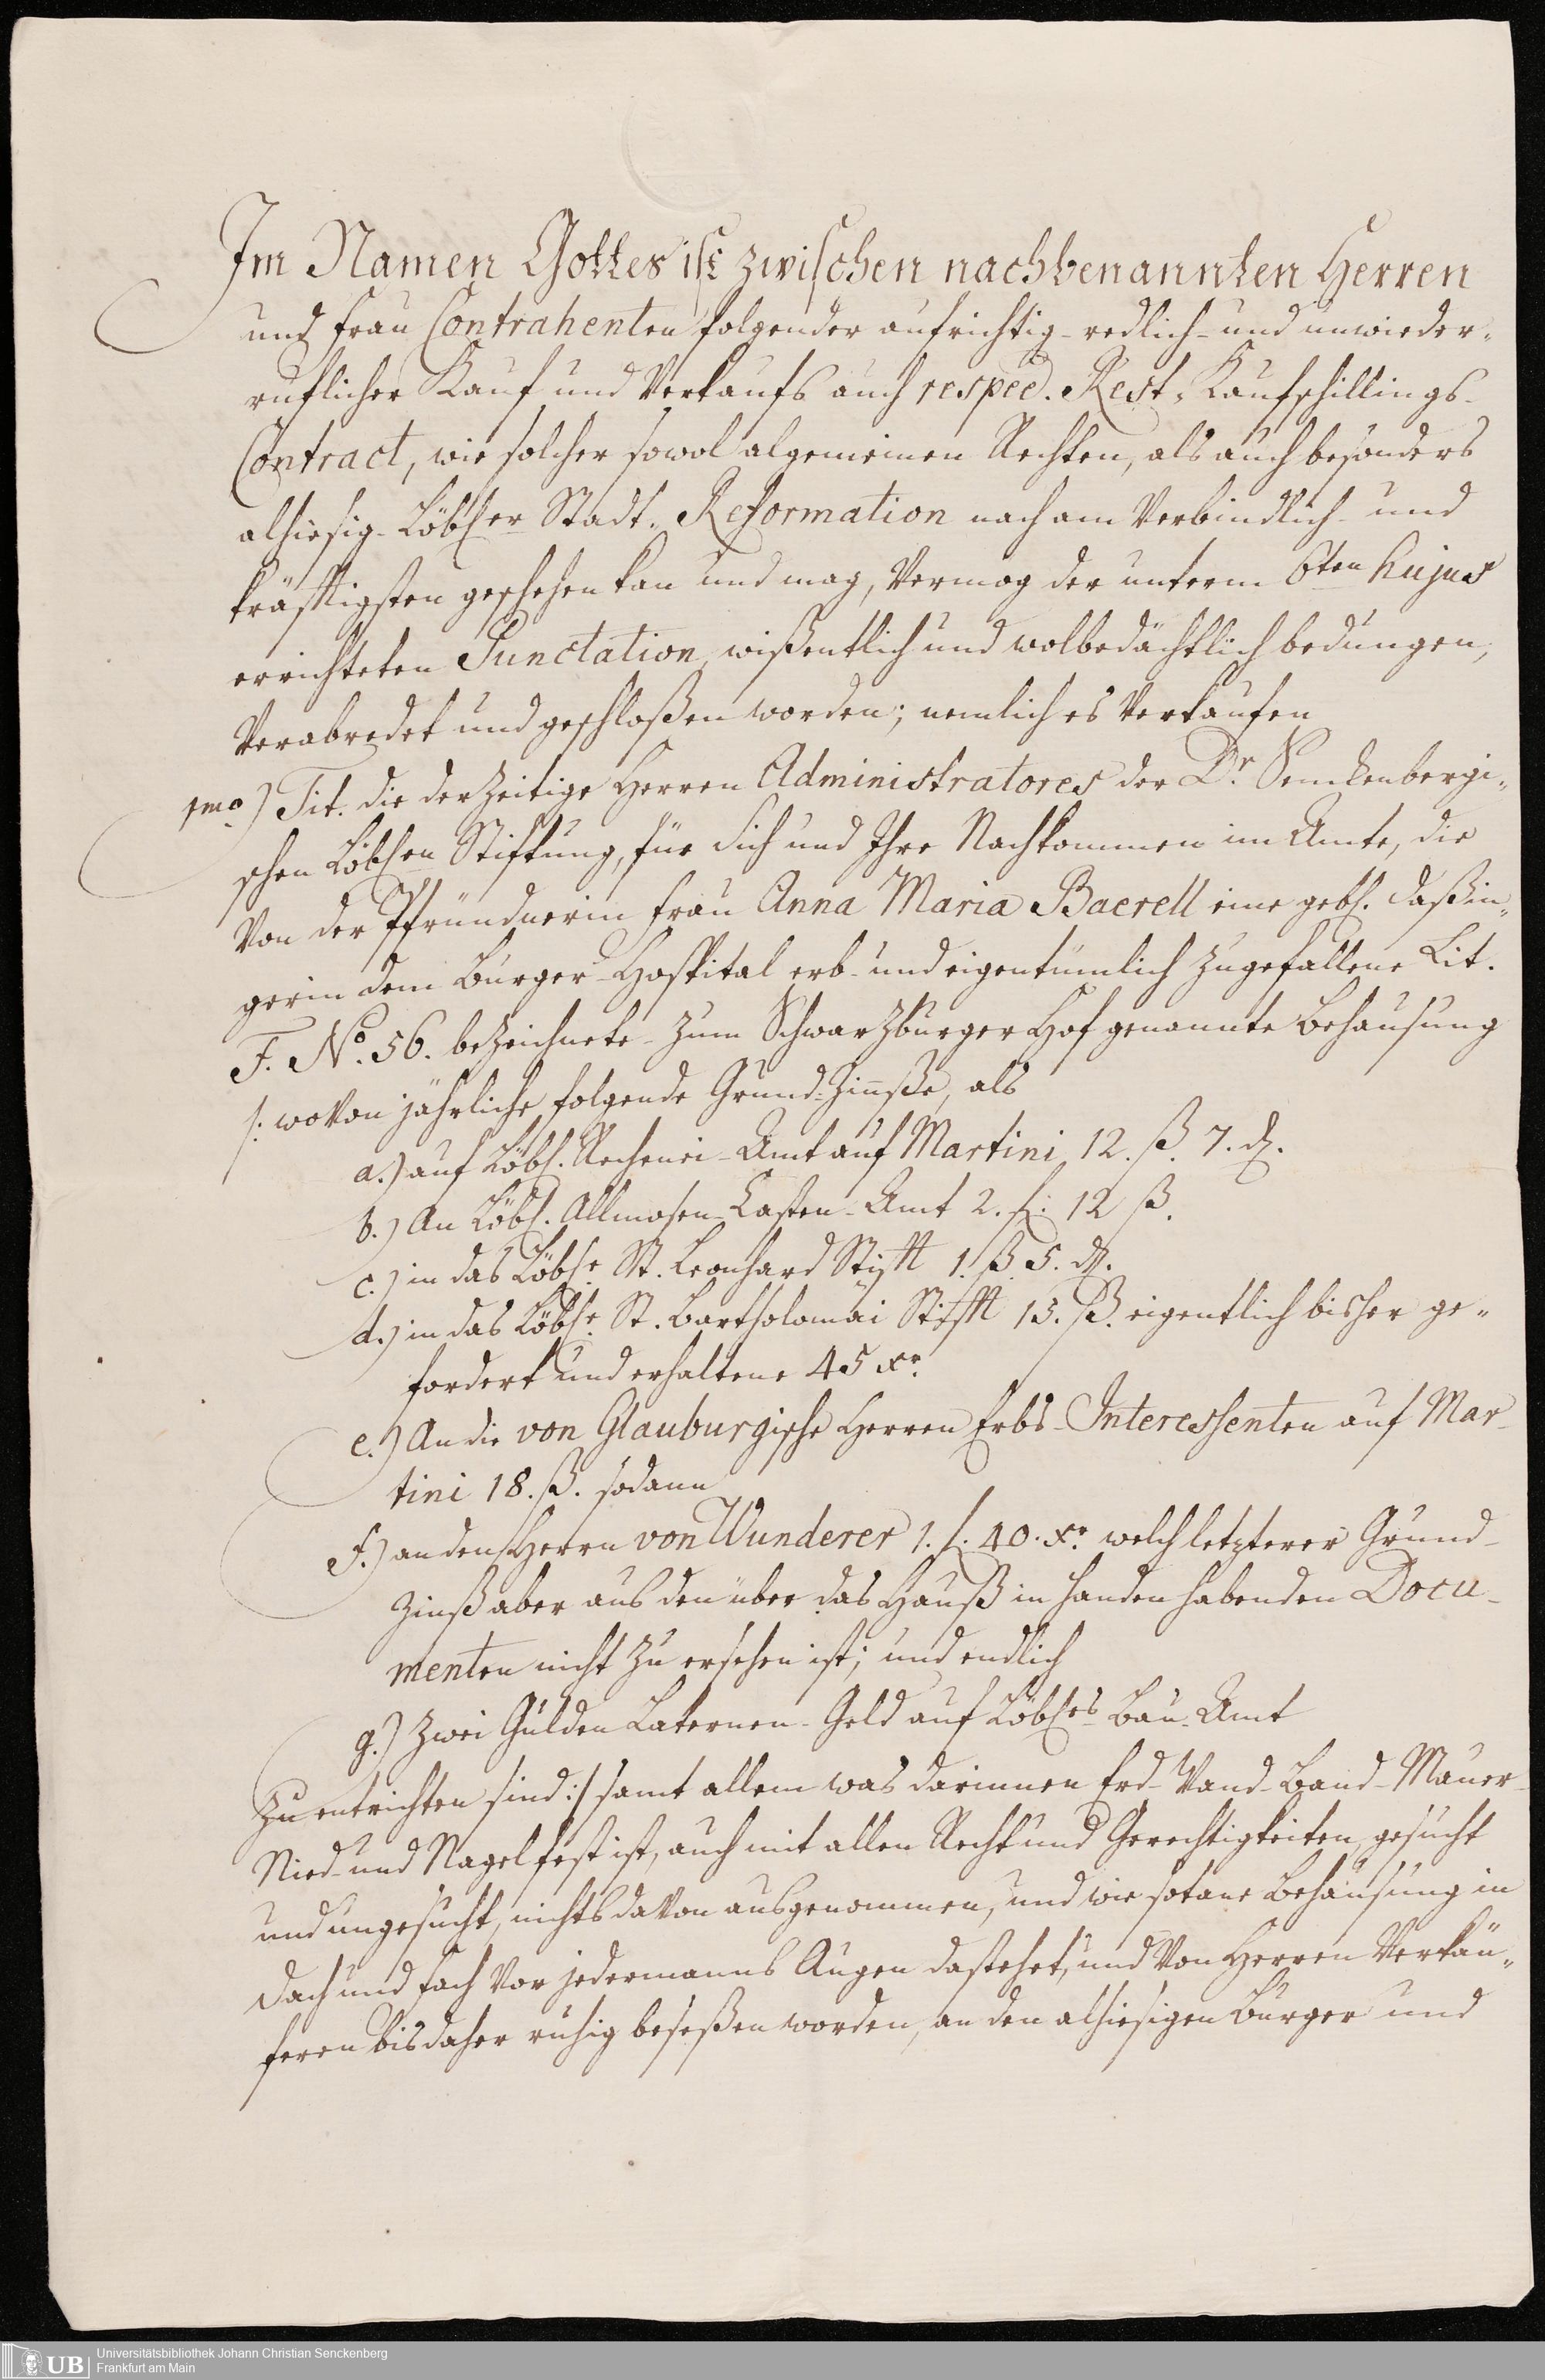 Im Namen Gottes ist zwischen nachbenannten Herren
und Frau Contrahenten folgender aufrichtig- redlich- und unwieder„
ruflicher Kauf und Verkaufs auch resped. Rest„Kaufschillings-
Contract, wie solcher sowol algemeinen Rechten, als auch besonders
alhiesig-Löbler Stadt„Reformation nach am Verbindlich- und
kräfftigsten geschehen kan und mag, Vermog der unterm 6ten hujus
errichteten Punctation, wißentlich und wolbedächtlich bedungen,
Verabredet und geschloßen worden; nemlich es Verkaufen
1mo) Tit. die derzeitige Herren Administratores der Dr. Senckenbergi„
schen Löblen Stiftung, für Sich und Ihre Nachkommen im Amte, die
Von der Pfründnerin Frau Anna Maria Baerell eine gebl. Daßin„
gerin dem Bürger-Hospital erb- und eigentümlich zugefallene Lit.
F. No. 56. bezeichnete- zum Schwarzburger Hof genannte Behausung
/: wovon jährliche folgende Grund-Zinnße, als
a.) auf Löbl. Rechenei-Amt auf Martini 12. ß. 7. d.
b.) An Löbl. Allmosen-Casten-Amt 2. f. 12 ß.
c.) in das Löble St. Leonhard Stifft 1. ß. 5. d.
d.) in das Löble St. Bartholomäi Stifft 15. ß. eigentlich bisher ge„
fordert und erhaltene 45 xr.
e.) An die von Glauburgische Herren Erbs-Interessenten auf Mar-
tini 18. ß. sodann
f.) an den Herrn von Wunderer 1. f. 40. xr. welch letzterer Grund-
Zinß aber aus den über das Hauß in Handen habenden Docu-
menten nicht zu ersehen ist; und endlich
g.) Zwei Gulden Laternen-Geld auf Löbles Bau-Amt
zu entrichten sind :/ samt allem was darinnen Erd- Wand- Band- Mauer-
Nied- und Nagelfest ist, auch mit allen Recht und Gerechtigkeiten, gesucht
und ungesucht, nichts davon ausgenommen, und wie sotane Behausung in
Dach und Fach Vor jedermanns Augen dastehet, und Von Herren Verkäu„
feren bisdaher ruhig beseßen worden, an den alhiesigen Bürger und
UB Universitätsbibliothek Johann Christian Senckenberg
Frankfurt am Main